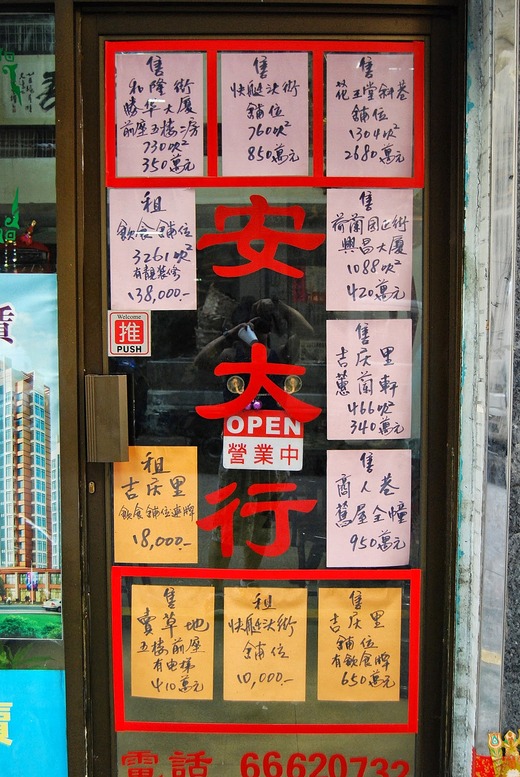 售
和隆街
勝华大厦
前座五楼二房
730呎²
350萬元
售
快艇头街
舖位
760呎²
850萬元
售
花王堂斜巷
舖位
1304呎²
2680萬元
租
飲食舖位
3261呎²
有靚装修
138,000.-
售
荷蘭园正街
興昌大廈
1088呎²
420萬元
安大行
Welcome
推
PUSH
售
吉庆里
蕙蘭軒
466呎²
340萬元
OPEN
營業中
租
吉庆里
飲食舖位連牌
18,000.-
售
商人巷
舊屋全幢
950萬元
售
賣草地
五楼前座
有电梯
410萬元
租
快艇头街
舖位
10,000.-
售
吉庆里
舖位
有飲食牌
650萬元
電話 66620732